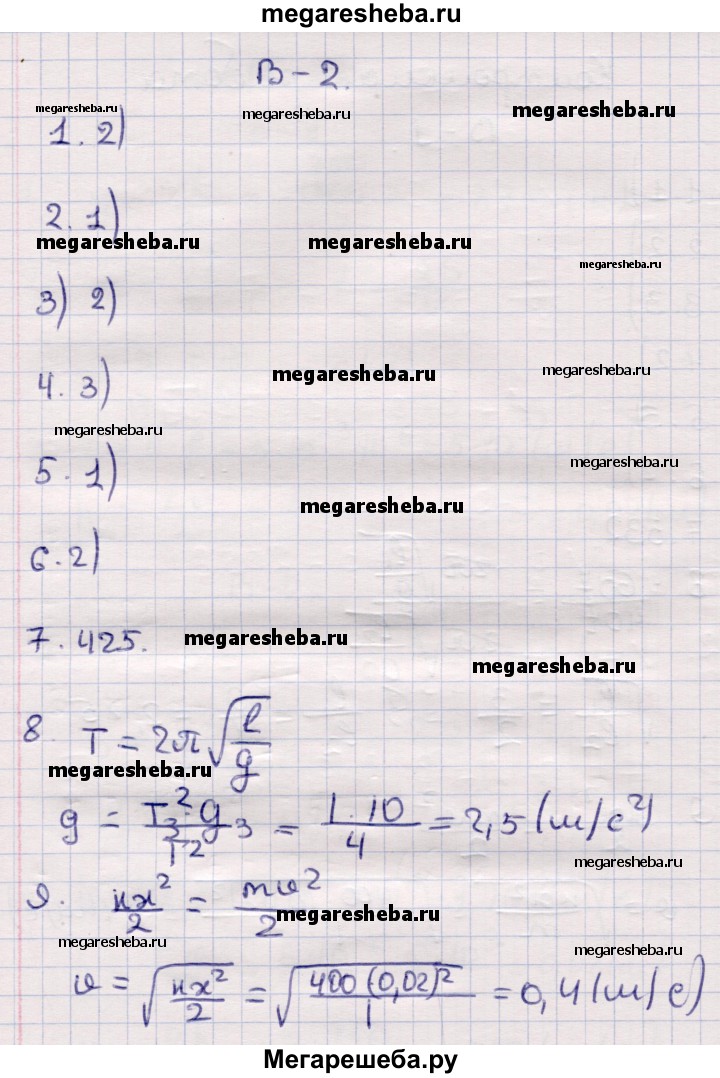 megaresheba.ru
В-2.
megaresheba.ru megaresheba.ru megaresheba.ru
1. 2)
2. 1)
megaresheba.ru megaresheba.ru
megaresheba.ru
3) 2)
4. 3)
megaresheba.ru megaresheba.ru
megaresheba.ru
5. 1)
megaresheba.ru
megaresheba.ru
6. 2)
7. 425.
megaresheba.ru
megaresheba.ru
8 T = 2π√(l/g)
megaresheba.ru
g = T₃²·g₃/T² = 1·10/4 = 2,5 (м/с²)
megaresheba.ru
9. кх²/2 = mv²/2
megaresheba.ru
megaresheba.ru megaresheba.ru
v = √(кх²/2) = √(400(0,02)²/1) = 0,4 (м/с)
Мегарешеба.ру